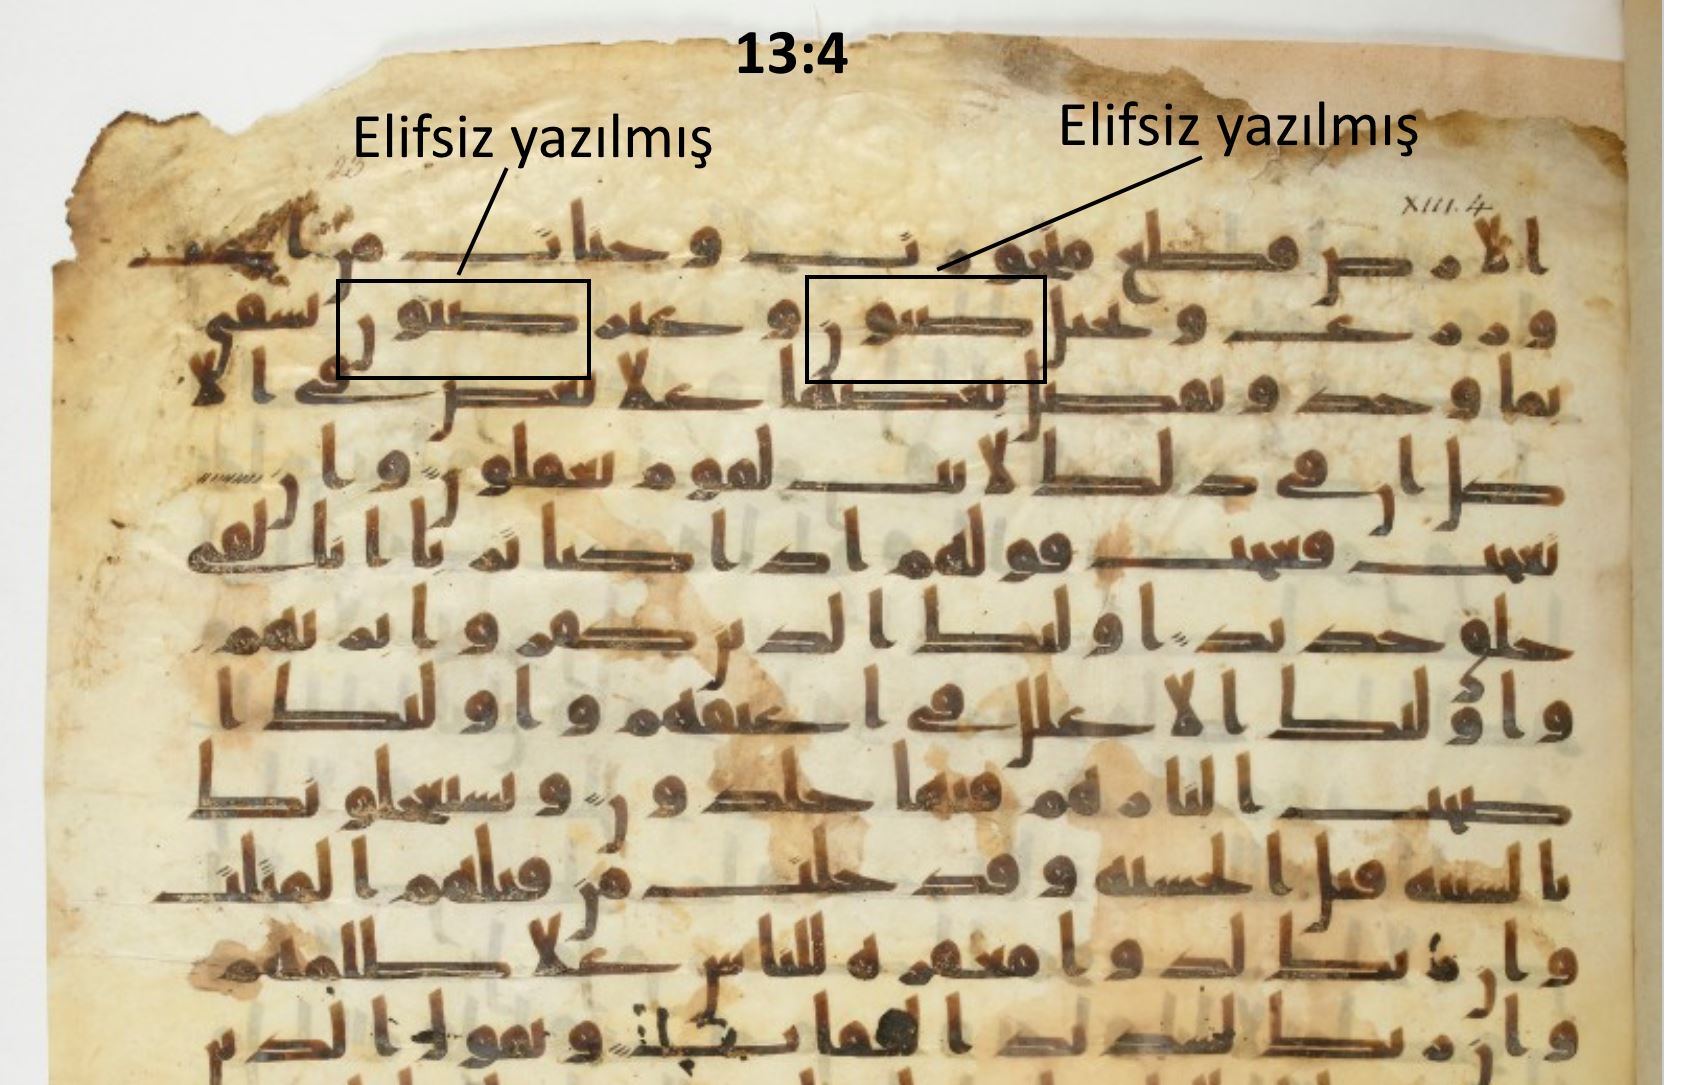 13:4
Elifsiz yazılmış
Elifsiz yazılmış
XIII.4
الارض قطع متجورت وجنات من اعنب
وزرع ونخيل صنون وغير صنون يسقى
بما وحد ونفضل بعضها علا بعض في الا
كل ان في ذلك لايت لقوم يعقلون وان
تعجب فعجب قولهم اذا كنا تربا انا لفي
خلق جديد اولئك الذين كفروا بربهم
واولئك الاغلل في اعنقهم واولئك ا
صحب النار هم فيها خلدون ويستعجلونك
بالسيئة قبل الحسنة وقد خلت من قبلهم المثلت
وان ربك لذو مغفرة للناس علا ظلمهم
وان ربك لشديد العقاب ويقول الذين